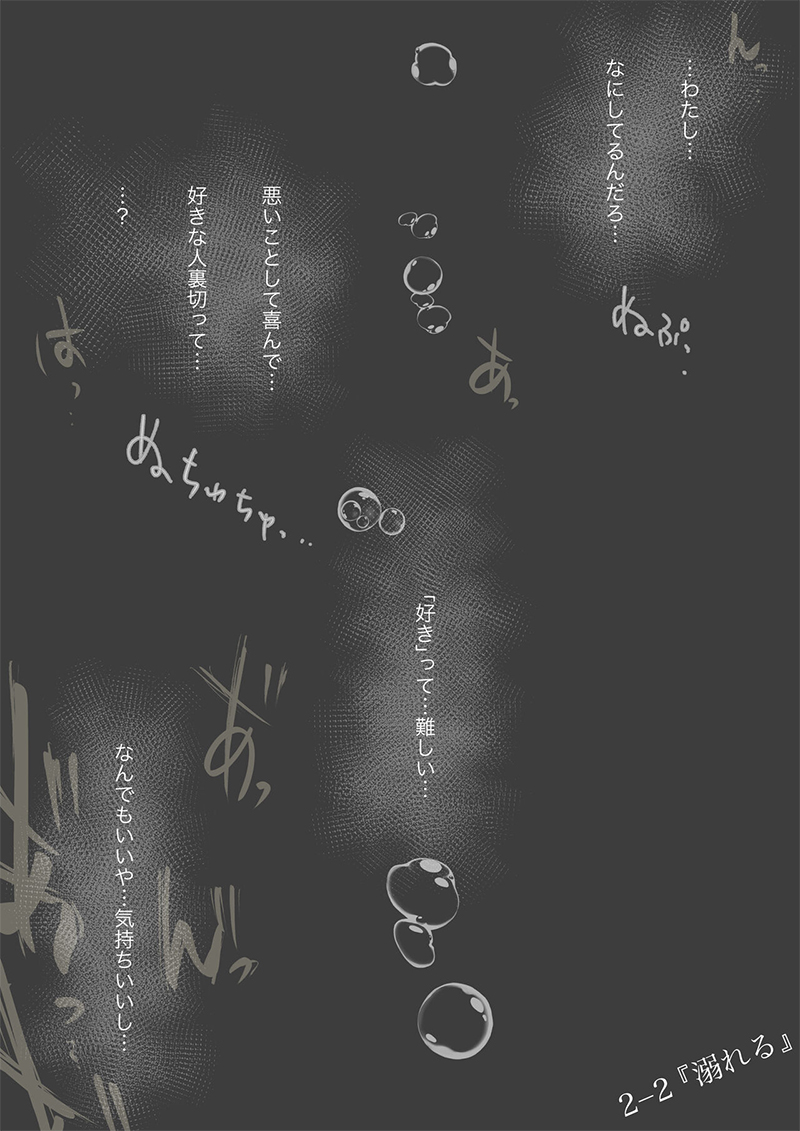 んっ
…わたし…
なにしてるんだろ…
ぬぷっ..
あっ
悪いことして喜んで…
好きな人裏切って…
…？
はっ…
ぬちゅちゅっ...
「好き」って…難しい…
あ゛っ
なんでもいいや…気持ちいいし…
ん゛っ
あ゛っ…
2-2『溺れる』